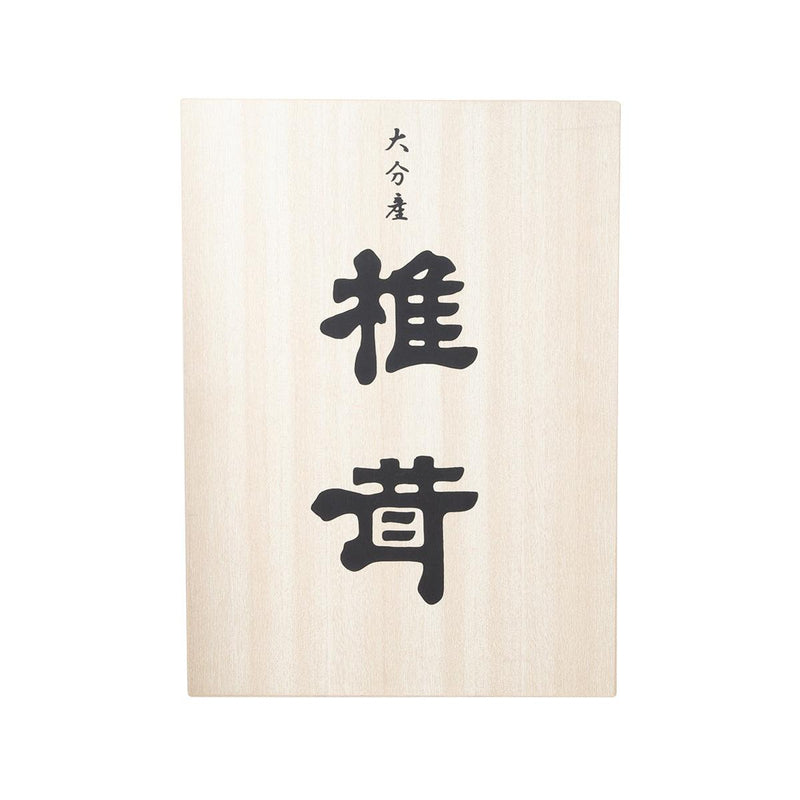 大分産
椎茸